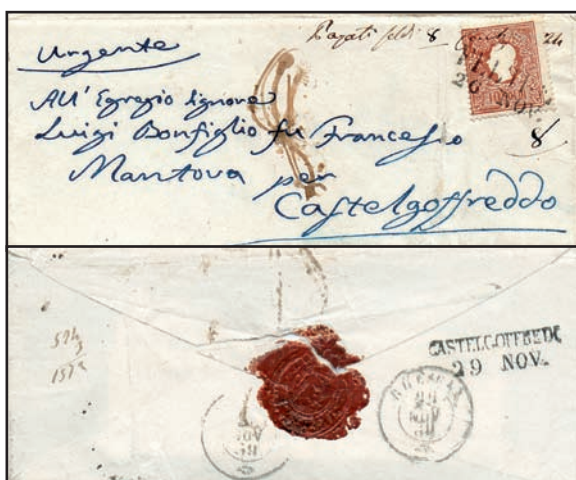 Urgente
Pagati soldi 8
24
26 NOV.
10
8
All' Egregio Signore
Luigi Bonfiglio fu Francesco
Mantova per
Castelgoffreddo
CASTELGOFFREDO
29 NOV.
BRESCIA
NOV